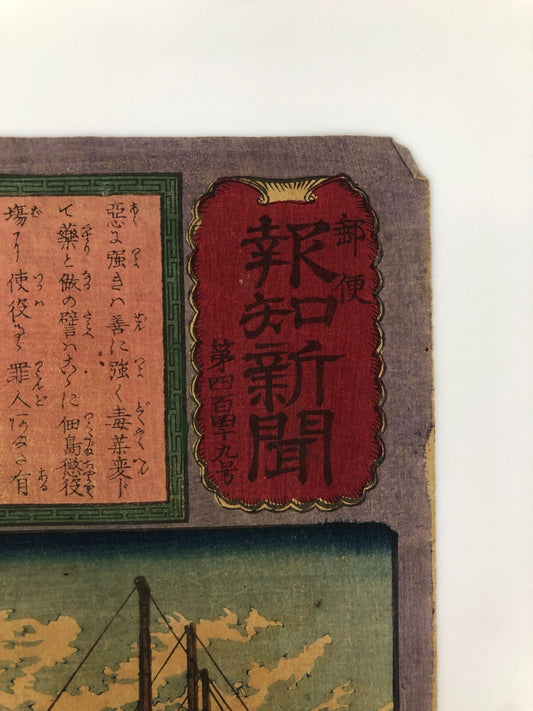 郵便
報知新聞
第四百四十九号
惡に強きハ善に強く毒藥変ド
て藥と做の譬はこゝに佃島懲役
場より使役る罪人
有